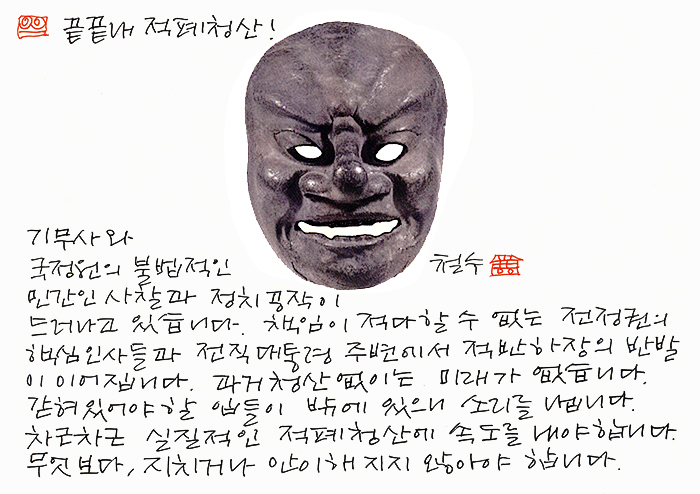 끝끝내 적폐청산!
기무사와
국정원의 불법적인
철수
민간인 사찰과 정치공작이
드러나고 있습니다. 책임이 적다할 수 없는 전정권의
핵심인사들과 전직대통령 주변에서 적반하장의 반발
이 이어집니다. 과거청산없이는 미래가 없습니다.
갇혀있어야할 입들이 밖에 있으니 소리를 냅니다.
차근차근 실질적인 적폐청산에 속도를 내야합니다.
무엇보다, 지치거나 안이해지지 않아야 합니다.